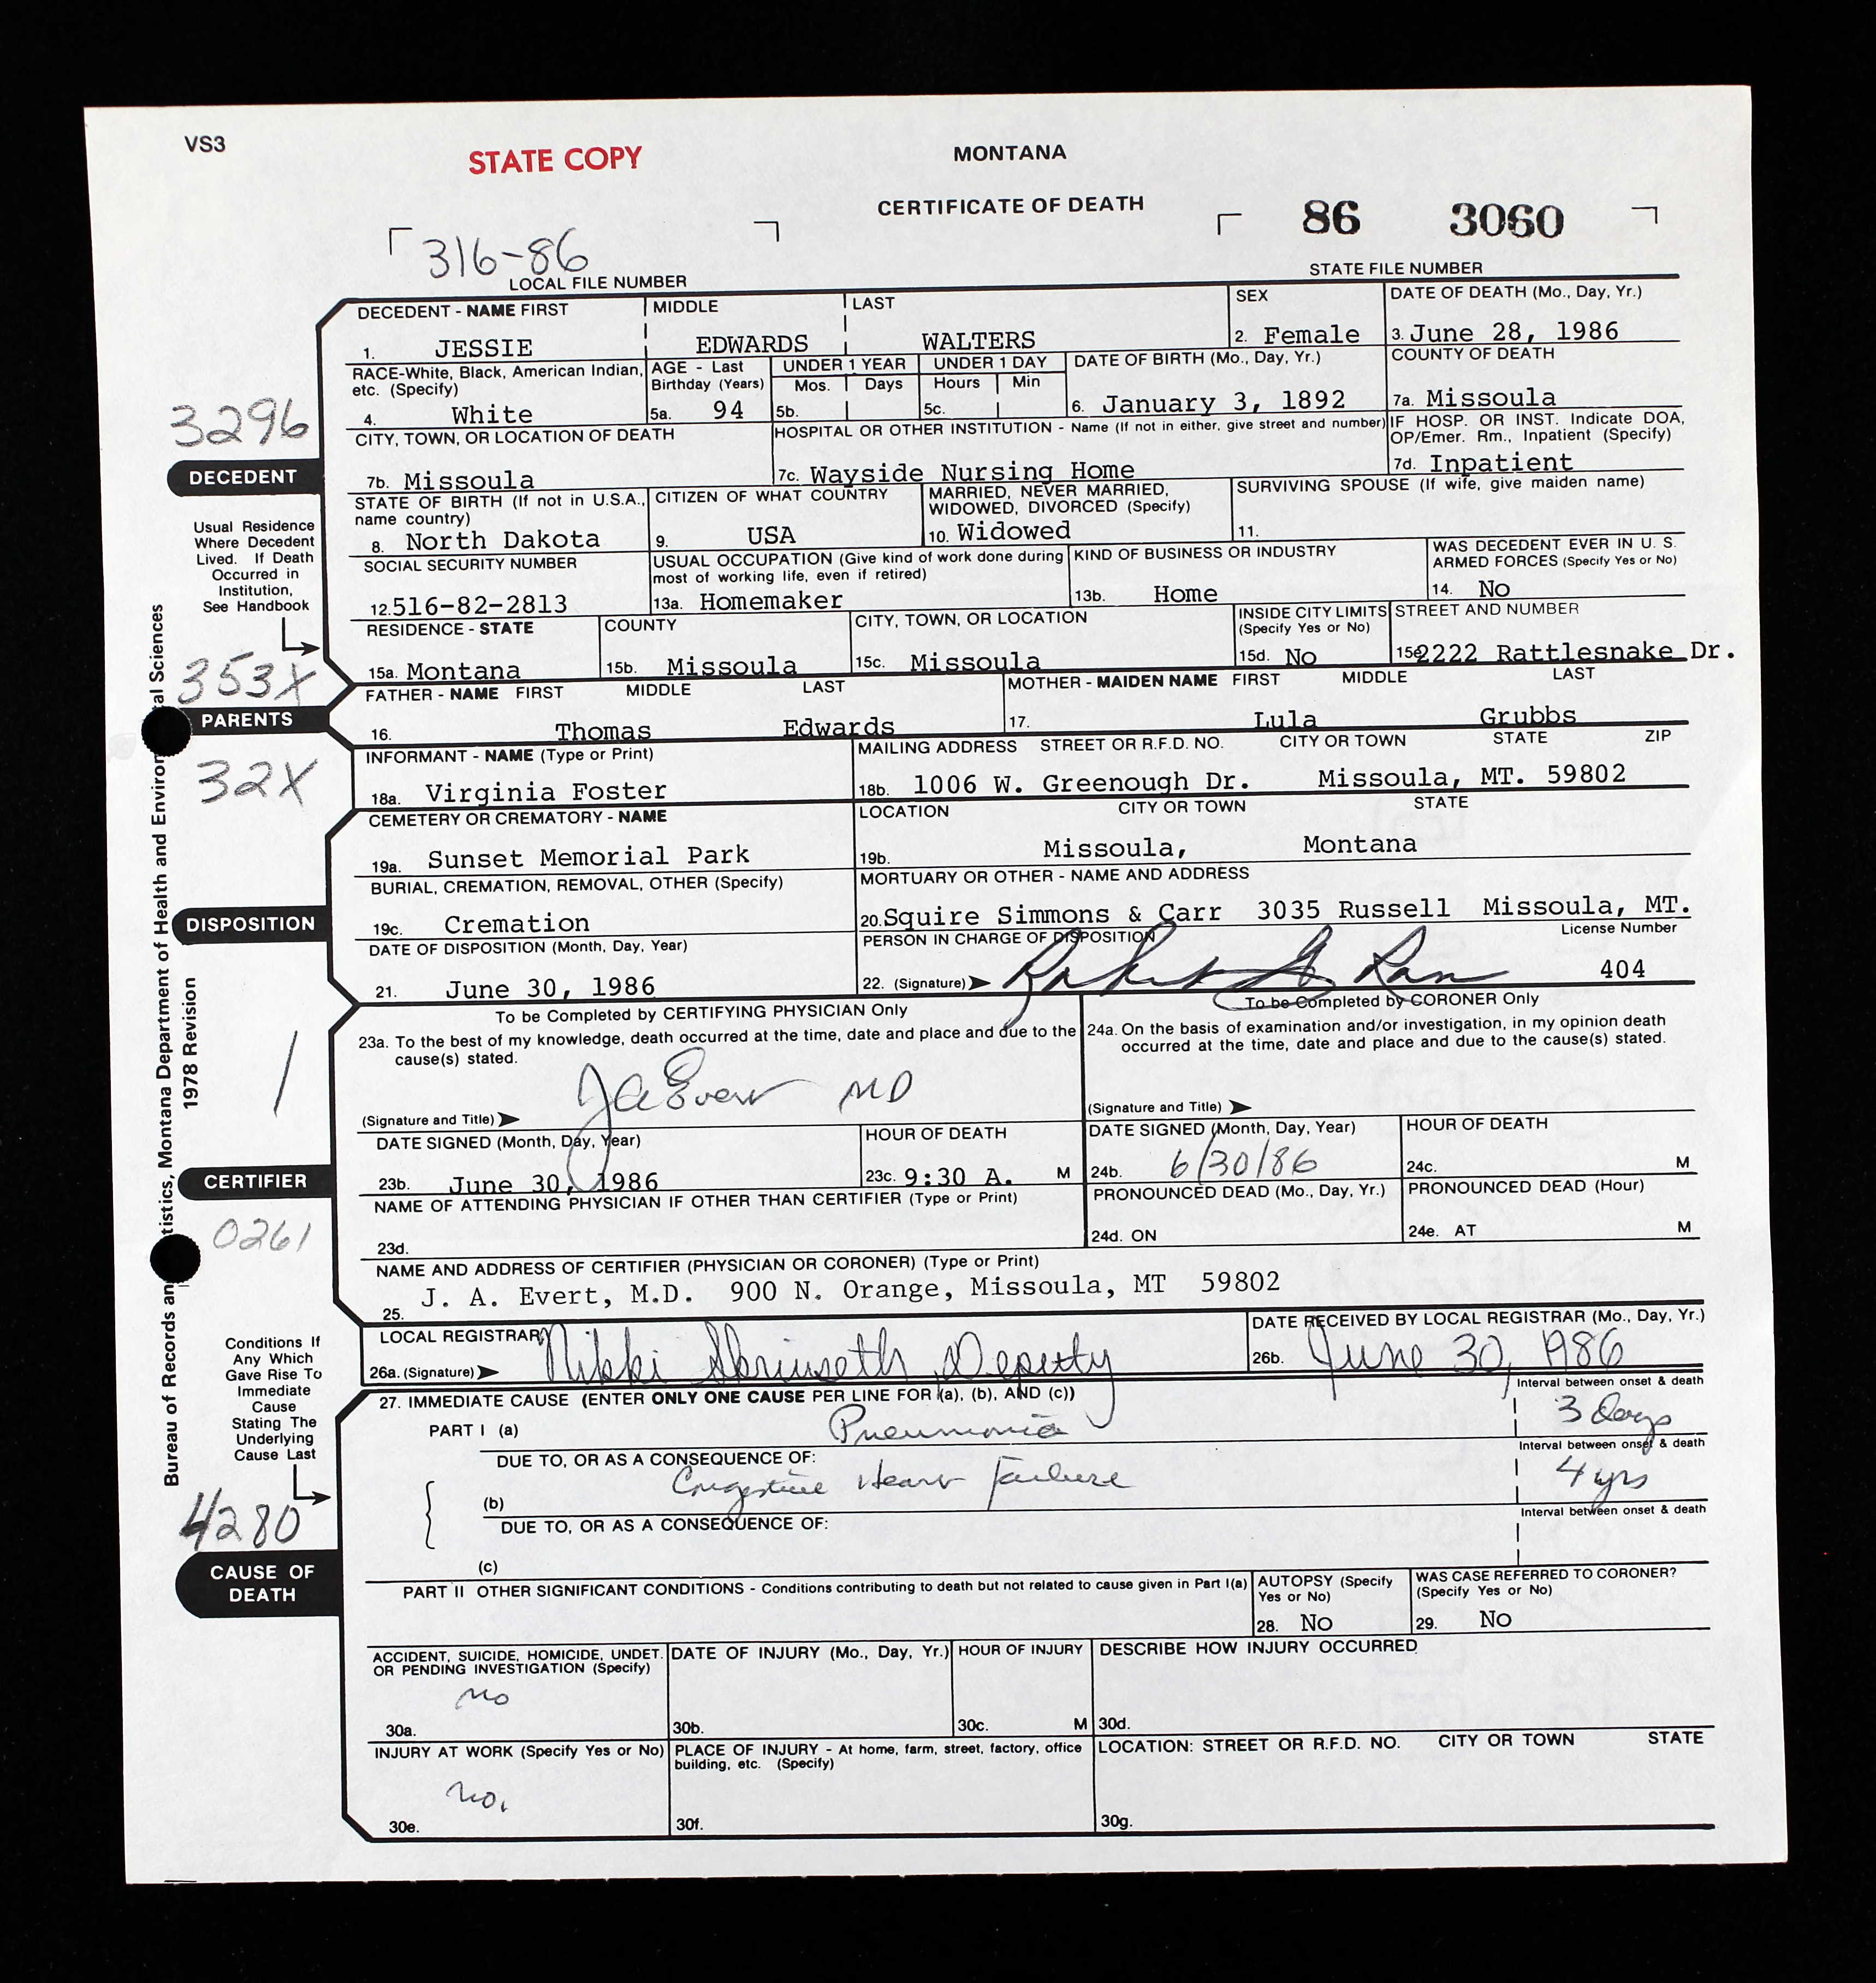 VS3
STATE COPY
MONTANA
CERTIFICATE OF DEATH
316-86
86 3060
LOCAL FILE NUMBER
STATE FILE NUMBER
DECEDENT - NAME FIRST MIDDLE LAST
SEX
DATE OF DEATH (Mo., Day, Yr.)
1. JESSIE EDWARDS WALTERS
2. Female
3. June 28, 1986
RACE-White, Black, American Indian, etc. (Specify)
4. White
AGE - Last Birthday (Years)
5a. 94
UNDER 1 YEAR
Mos. Days
5b.
UNDER 1 DAY
Hours Min
5c.
DATE OF BIRTH (Mo., Day, Yr.)
6. January 3, 1892
COUNTY OF DEATH
7a. Missoula
3296
DECEDENT
CITY, TOWN, OR LOCATION OF DEATH
7b. Missoula
HOSPITAL OR OTHER INSTITUTION - Name (If not in either, give street and number)
7c. Wayside Nursing Home
IF HOSP. OR INST. Indicate DOA, OP/Emer. Rm., Inpatient (Specify)
7d. Inpatient
STATE OF BIRTH (If not in U.S.A., name country)
8. North Dakota
CITIZEN OF WHAT COUNTRY
9. USA
MARRIED, NEVER MARRIED, WIDOWED, DIVORCED (Specify)
10. Widowed
SURVIVING SPOUSE (If wife, give maiden name)
11.
Usual Residence
Where Decedent
Lived. If Death
Occurred in
Institution,
See Handbook
SOCIAL SECURITY NUMBER
12. 516-82-2813
USUAL OCCUPATION (Give kind of work done during most of working life, even if retired)
13a. Homemaker
KIND OF BUSINESS OR INDUSTRY
13b. Home
WAS DECEDENT EVER IN U. S. ARMED FORCES (Specify Yes or No)
14. No
RESIDENCE - STATE
15a. Montana
COUNTY
15b. Missoula
CITY, TOWN, OR LOCATION
15c. Missoula
INSIDE CITY LIMITS (Specify Yes or No)
15d. No
STREET AND NUMBER
15e 2222 Rattlesnake Dr.
353X
PARENTS
FATHER - NAME FIRST MIDDLE LAST
16. Thomas Edwards
MOTHER - MAIDEN NAME FIRST MIDDLE LAST
17. Lula Grubbs
32X
INFORMANT - NAME (Type or Print)
18a. Virginia Foster
MAILING ADDRESS STREET OR R.F.D. NO. CITY OR TOWN STATE ZIP
18b. 1006 W. Greenough Dr. Missoula, MT. 59802
CEMETERY OR CREMATORY - NAME
19a. Sunset Memorial Park
LOCATION CITY OR TOWN STATE
19b. Missoula, Montana
DISPOSITION
BURIAL, CREMATION, REMOVAL, OTHER (Specify)
19c. Cremation
MORTUARY OR OTHER - NAME AND ADDRESS
20. Squire Simmons & Carr 3035 Russell Missoula, MT.
DATE OF DISPOSITION (Month, Day, Year)
21. June 30, 1986
PERSON IN CHARGE OF DISPOSITION
License Number
22. (Signature) 404
To be Completed by CERTIFYING PHYSICIAN Only
23a. To the best of my knowledge, death occurred at the time, date and place and due to the cause(s) stated.
(Signature and Title) JAEvert MD
To be Completed by CORONER Only
24a. On the basis of examination and/or investigation, in my opinion death occurred at the time, date and place and due to the cause(s) stated.
(Signature and Title)
1
CERTIFIER
0261
DATE SIGNED (Month, Day, Year)
23b. June 30, 1986
HOUR OF DEATH
23c. 9:30 A. M
DATE SIGNED (Month, Day, Year)
24b. 6/30/86
HOUR OF DEATH
24c. M
NAME OF ATTENDING PHYSICIAN IF OTHER THAN CERTIFIER (Type or Print)
23d.
PRONOUNCED DEAD (Mo., Day, Yr.)
24d. ON
PRONOUNCED DEAD (Hour)
24e. AT M
NAME AND ADDRESS OF CERTIFIER (PHYSICIAN OR CORONER) (Type or Print)
25. J. A. Evert, M.D. 900 N. Orange, Missoula, MT 59802
LOCAL REGISTRAR
26a. (Signature) Nikki Deputy
DATE RECEIVED BY LOCAL REGISTRAR (Mo., Day, Yr.)
26b. June 30, 1986
Conditions If
Any Which
Gave Rise To
Immediate
Cause
Stating The
Underlying
Cause Last
4280
CAUSE OF
DEATH
27. IMMEDIATE CAUSE (ENTER ONLY ONE CAUSE PER LINE FOR (a), (b), AND (c))
PART I (a) Pneumonia
Interval between onset & death
3 days
DUE TO, OR AS A CONSEQUENCE OF:
(b) Congestive Heart Failure
Interval between onset & death
4 yrs
DUE TO, OR AS A CONSEQUENCE OF:
(c)
Interval between onset & death
PART II OTHER SIGNIFICANT CONDITIONS - Conditions contributing to death but not related to cause given in Part I(a)
AUTOPSY (Specify Yes or No)
28. No
WAS CASE REFERRED TO CORONER? (Specify Yes or No)
29. No
ACCIDENT, SUICIDE, HOMICIDE, UNDET. OR PENDING INVESTIGATION (Specify)
30a. no
DATE OF INJURY (Mo., Day, Yr.)
30b.
HOUR OF INJURY
30c. M
DESCRIBE HOW INJURY OCCURRED
30d.
INJURY AT WORK (Specify Yes or No)
30e. no.
PLACE OF INJURY - At home, farm, street, factory, office building, etc. (Specify)
30f.
LOCATION: STREET OR R.F.D. NO. CITY OR TOWN STATE
30g.
Bureau of Records an tistics, Montana Department of Health and Environ tal Sciences
1978 Revision